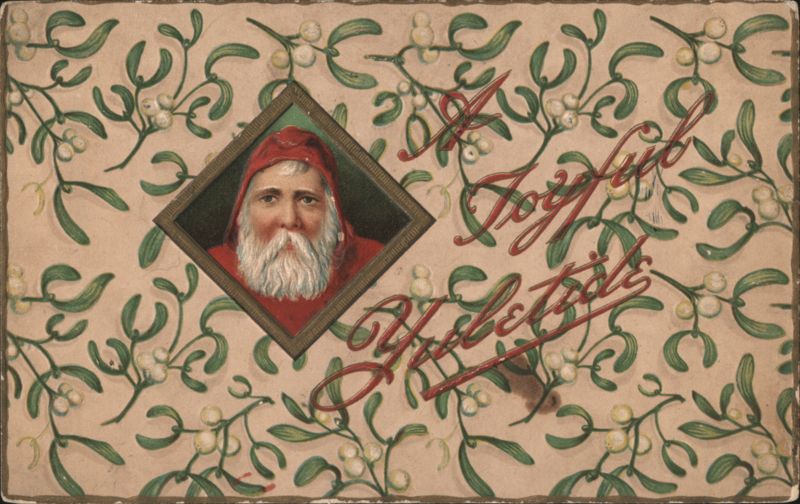 A
Joyful
Yuletide